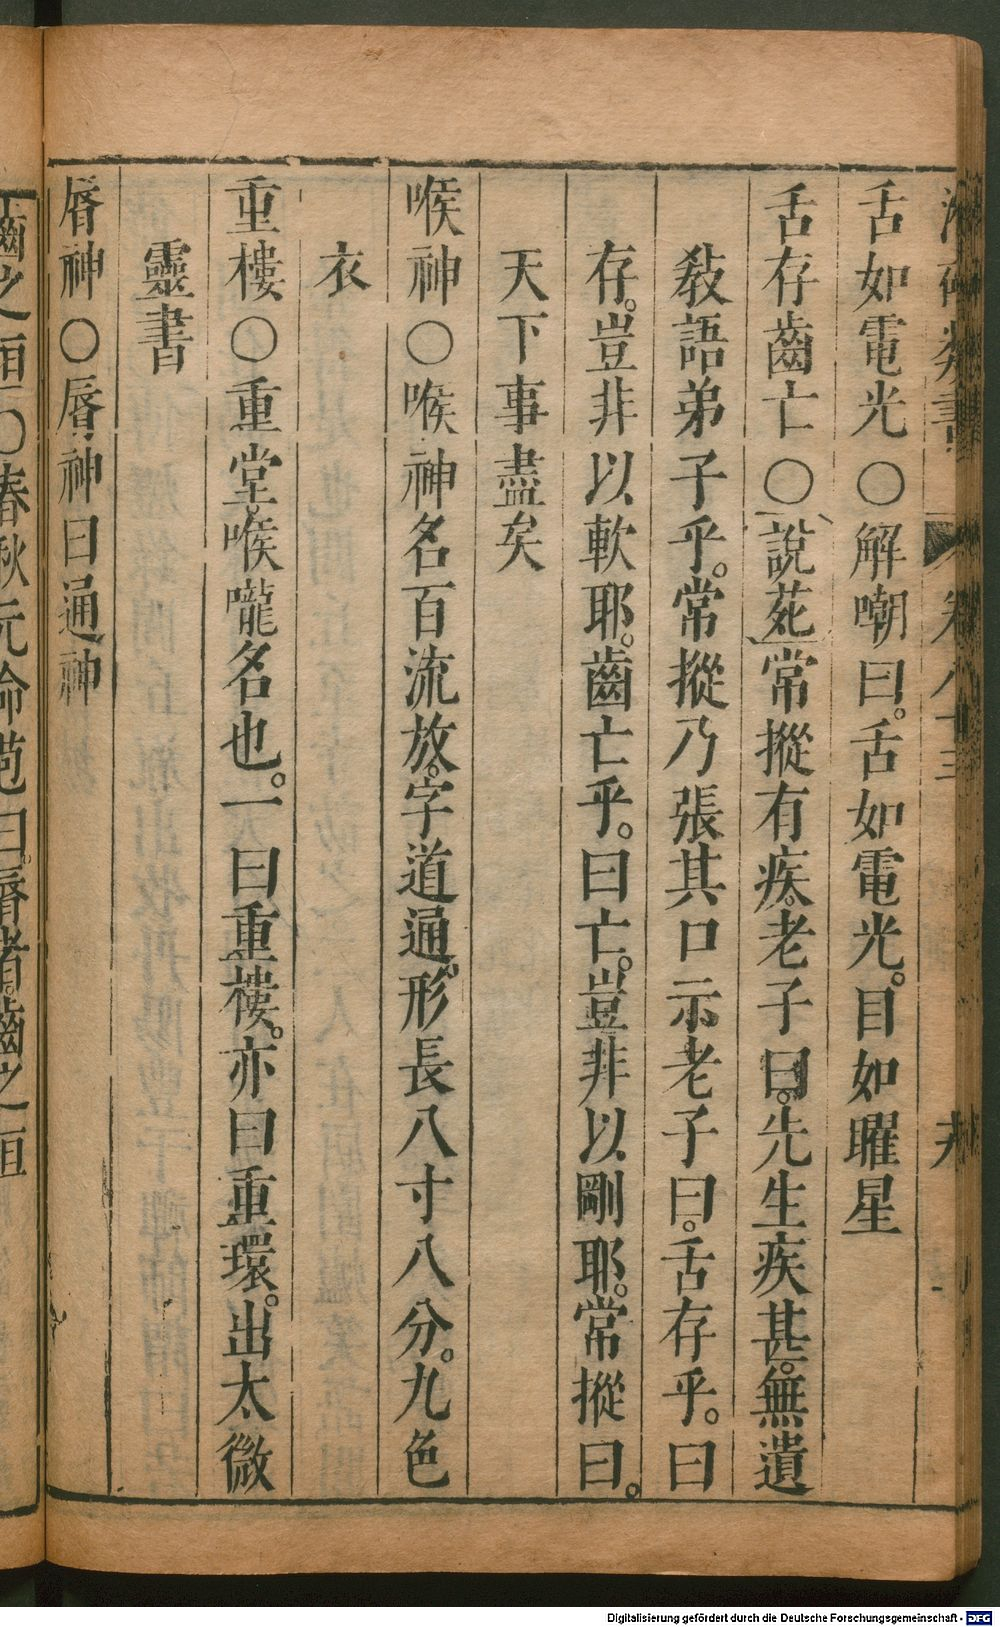 卷八十三
舌如電光○解嘲曰舌如電光目如曜星
舌存齒亡○說苑常摐有疾老子曰先生疾甚無遺
教語弟子乎常摐乃張其口示老子曰舌存乎曰
存豈非以軟耶齒亡乎曰亡豈非以剛耶常摐曰
天下事盡矣
喉神○喉神名百流放字道通形長八寸八分九色
衣
重樓○重堂喉嚨名也一曰重樓亦曰重環出太微
靈書
唇神○唇神曰通神
齒之垣○春秋元命苞曰唇者齒之垣
Digitalisierung gefördert durch die Deutsche Forschungsgemeinschaft - DFG